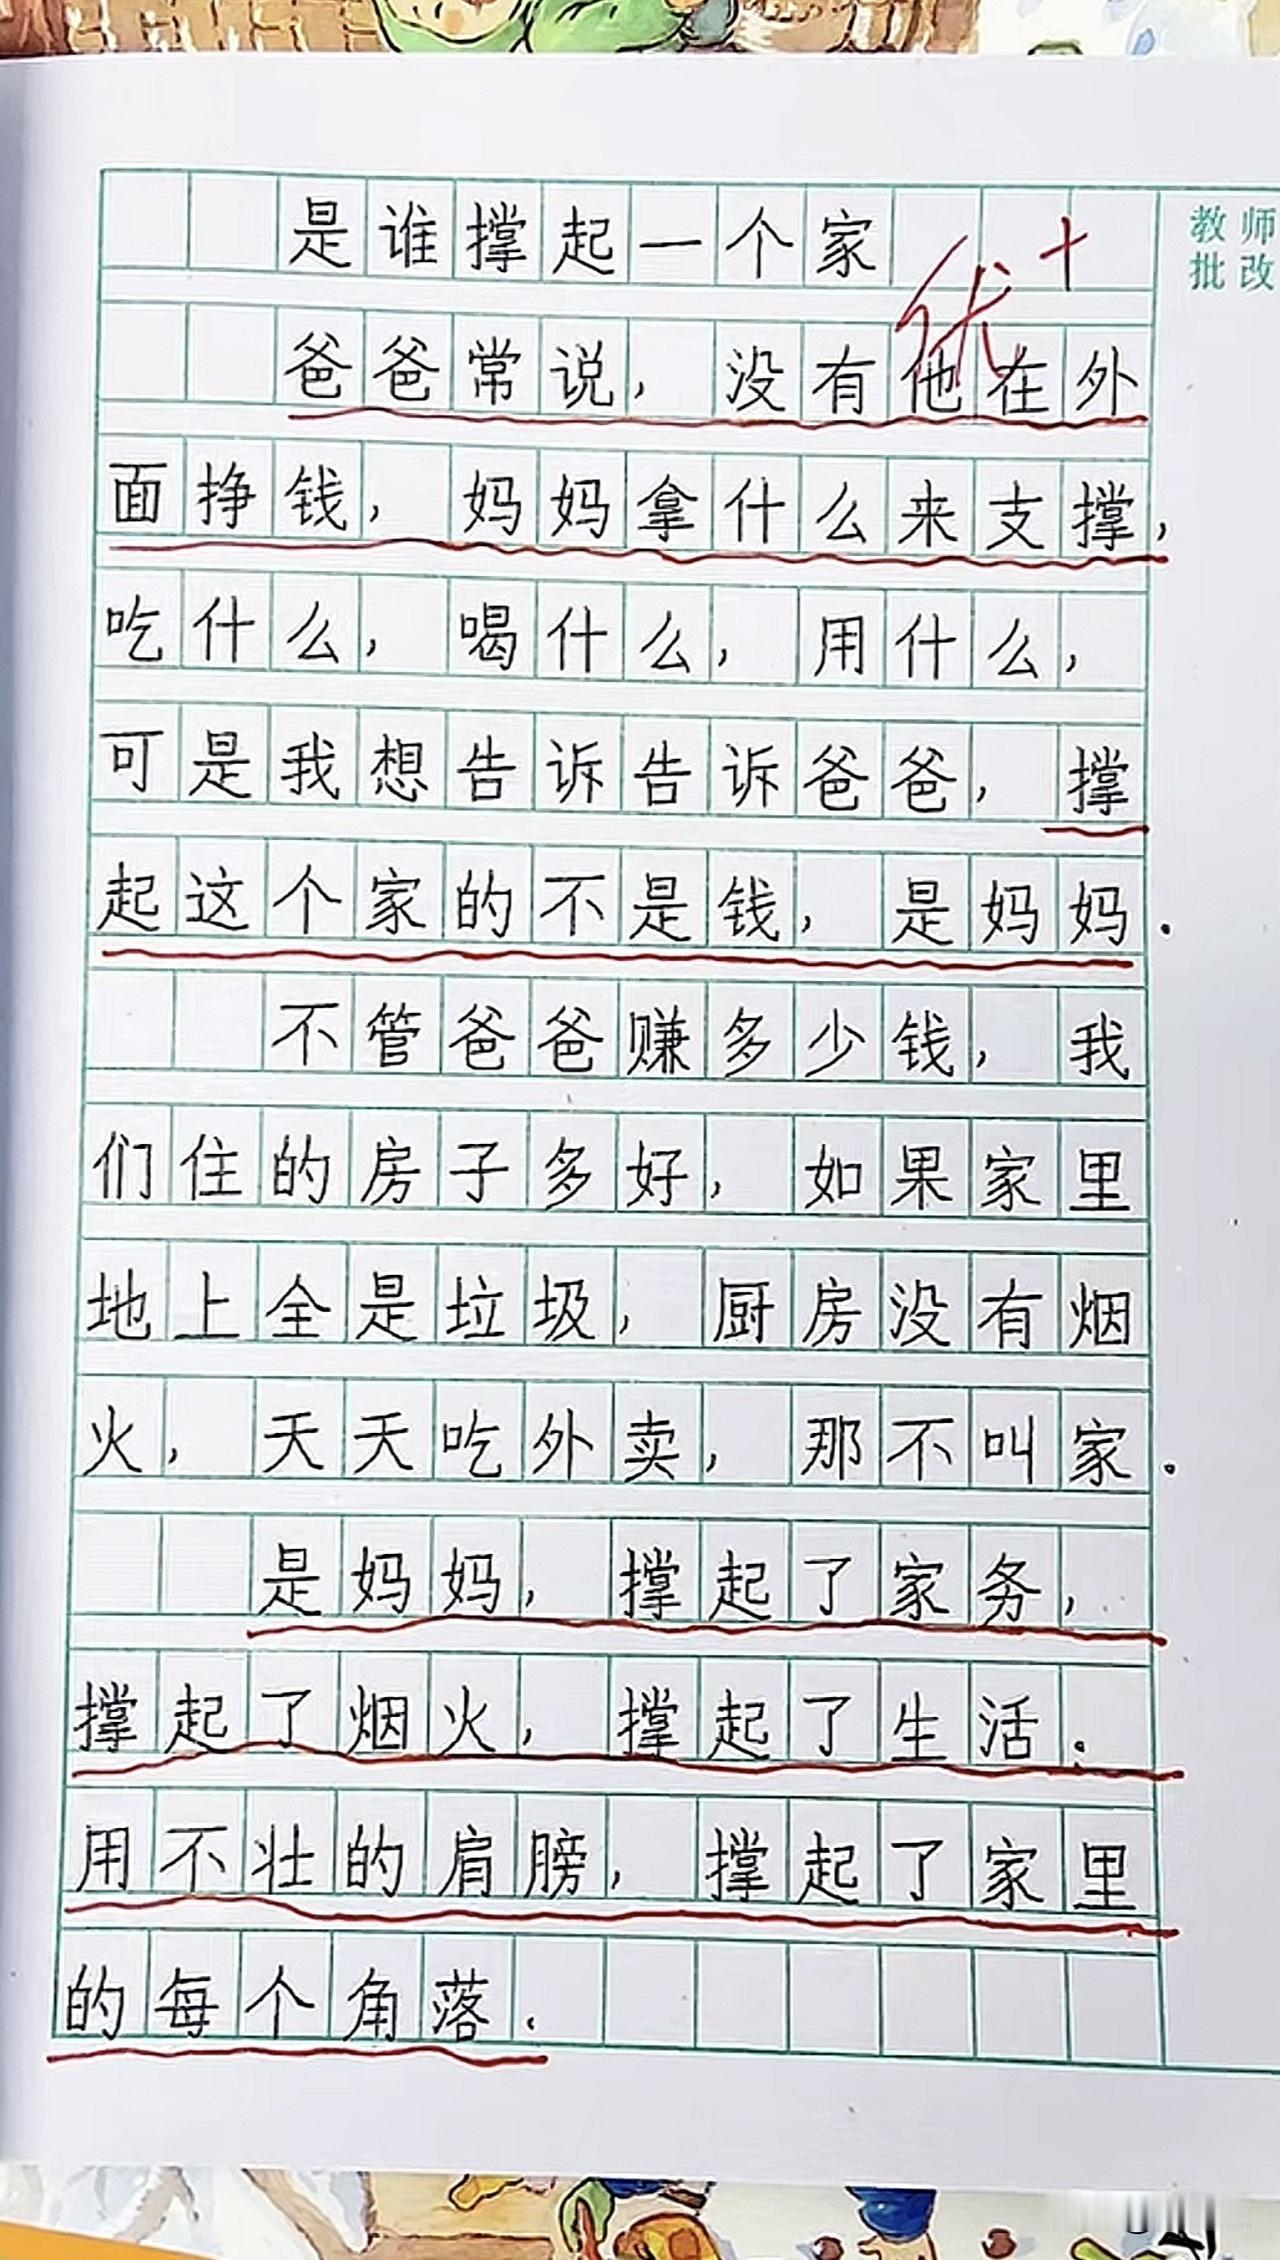 是谁撑起一个家
优+
教师
批改
爸爸常说，没有他在外
面挣钱，妈妈拿什么来支撑，
吃什么，喝什么，用什么，
可是我想告诉告诉爸爸，撑
起这个家的不是钱，是妈妈.
不管爸爸赚多少钱，我
们住的房子多好，如果家里
地上全是垃圾，厨房没有烟
火，天天吃外卖，那不叫家.
是妈妈，撑起了家务，
撑起了烟火，撑起了生活.
用不壮的肩膀，撑起了家里
的每个角落.